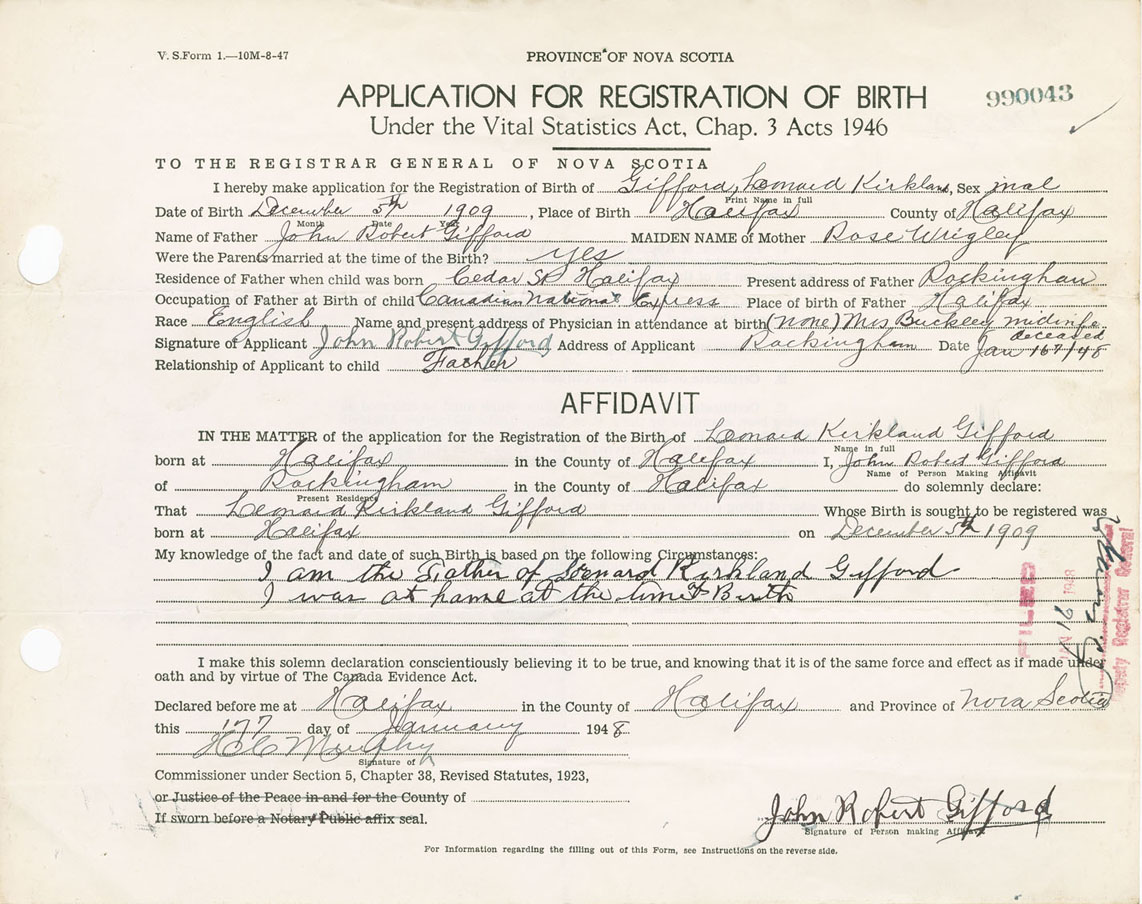 V. S.Form 1.—10M-8-47
PROVINCE OF NOVA SCOTIA
APPLICATION FOR REGISTRATION OF BIRTH
990043
Under the Vital Statistics Act, Chap. 3 Acts 1946
TO THE REGISTRAR GENERAL OF NOVA SCOTIA
I hereby make application for the Registration of Birth of Gifford, Leonard Kirkland, Sex mal
Print Name in full
Date of Birth December 5th 1909, Place of Birth Halifax County of Halifax
Month Date
Name of Father John Robert Gifford MAIDEN NAME of Mother Rose Wrigley
Were the Parents married at the time of the Birth? yes
Residence of Father when child was born Cedar St Halifax Present address of Father Rockingham
Occupation of Father at Birth of child Canadian National Express Place of birth of Father Halifax
Race English Name and present address of Physician in attendance at birth (none) Mrs Buckley midwife
deceased
Signature of Applicant John Robert Gifford Address of Applicant Rockingham Date Jan /48
Relationship of Applicant to child Father
AFFIDAVIT
IN THE MATTER of the application for the Registration of the Birth of Leonard Kirkland Gifford
Name in full
born at Halifax in the County of Halifax I, John Robert Gifford
Name of Person Making Affidavit
of Rockingham in the County of Halifax do solemnly declare:
Present Residence
That Leonard Kirkland Gifford Whose Birth is sought to be registered was
born at Halifax on December 5th 1909
My knowledge of the fact and date of such Birth is based on the following Circumstances:
I am the Father of Leonard Kirkland Gifford
I was at home at the time Birth
FILED
JAN 21 1948
Deputy Registrar General
I make this solemn declaration conscientiously believing it to be true, and knowing that it is of the same force and effect as if made under
oath and by virtue of The Canada Evidence Act.
Declared before me at Halifax in the County of Halifax and Province of Nova Scotia
this day of January 1948
Murphy
Signature of
Commissioner under Section 5, Chapter 38, Revised Statutes, 1923,
or Justice of the Peace in and for the County of
If sworn before a Notary Public affix seal.
John Robert Gifford
Signature of Person making Affidavit
For Information regarding the filling out of this Form, see Instructions on the reverse side.